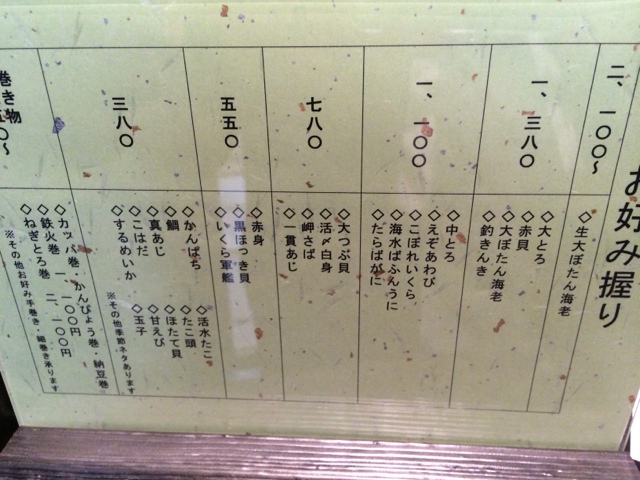 お好み握り
二、一〇〇〜
◇生大ぼたん海老
一、三八〇
◇大とろ
◇赤貝
◇大ぼたん海老
◇釣きんき
一、一〇〇
◇中とろ
◇えぞあわび
◇こぼれいくら
◇海水ばふんうに
◇たらばがに
七八〇
◇大つぶ貝
◇活〆白身
◇岬さば
◇一貫あじ
五五〇
◇赤身
◇黒ほっき貝
◇いくら軍艦
三八〇
◇かんぱち
◇鯛
◇真あじ
◇こはだ
◇するめいか
◇活水たこ
◇たこ頭
◇ほたて貝
◇甘えび
◇玉子
※その他季節ネタあります
巻き物
五〇〜
◇カッパ巻・かんぴょう巻・納豆巻
◇鉄火巻 一、一〇〇円
◇ねぎとろ巻 二、一〇〇円
※その他お好み手巻き・細巻き承ります